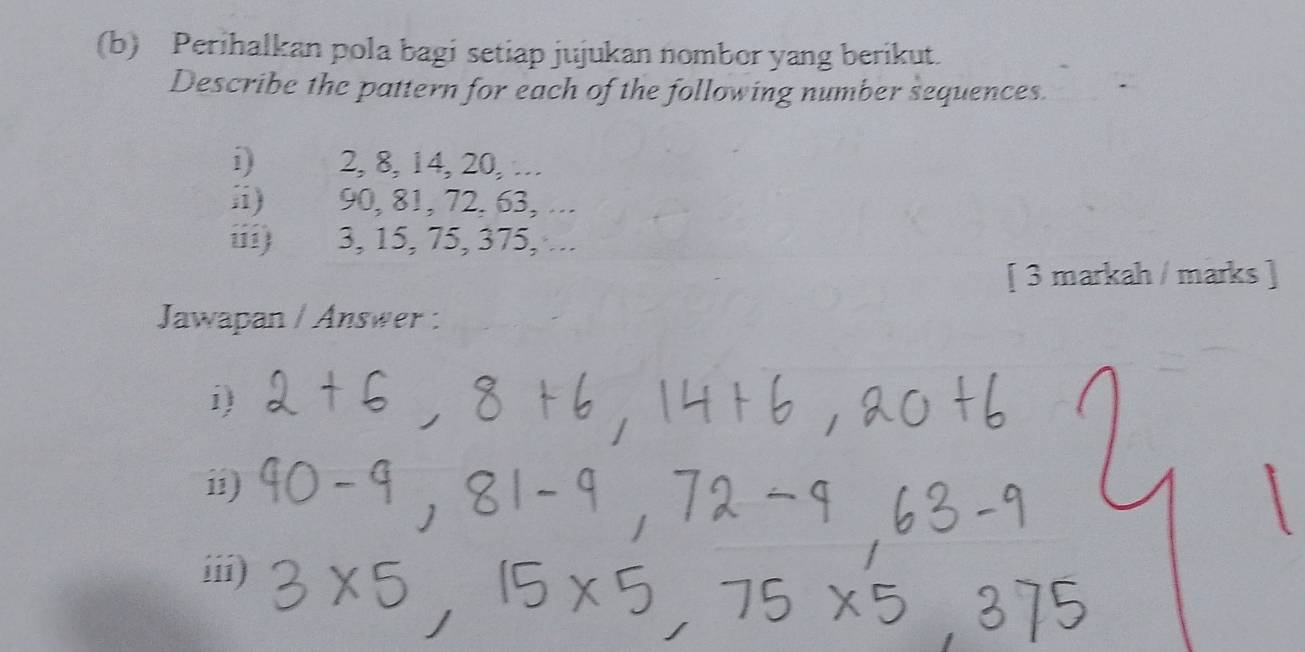 (b) Perihalkan pola bagi setiap jujukan nombor yang berikut.
Describe the pattern for each of the following number sequences.
i) 2, 8, 14, 20, ...
ii) 90, 81, 72, 63, ...
iii) 3, 15, 75, 375, ...
[ 3 markah / marks ]
Jawapan / Answer :
i) 2 + 6, 8 + 6, 14 + 6, 20 + 6
ii) 90 - 9, 81 - 9, 72 - 9, 63 - 9
iii) 3 × 5, 15 × 5, 75 × 5, 375